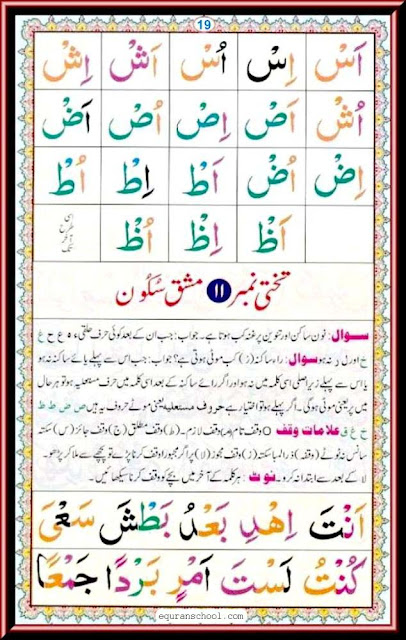 19
اَسْ اِسْ اُسْ اَشْ اِشْ
اُشْ اَصْ اِصْ اُصْ اَضْ
اِضْ اُضْ اَطْ اِطْ اُطْ
اَظْ اِظْ اُظْ اسی طرح آخر تک
تختی نمبر ۱۱ مشق سُکُون
سوال: نون ساکن اور تنوین پر غنہ کب ہوتا ہے۔ جواب: جب ان کے بعد کوئی حرف حلقی ء ہ ع ح غ
خ اور ل ر نہ ہو سوال: راء ساکنہ (رْ) کب موٹی ہوتی ہے؟ جواب: جب اس سے پہلے یائے ساکنہ نہ ہو
یا اس سے پہلے زیر اصلی اسی کلمہ میں نہ ہو اور اگر رائے ساکنہ کے بعد اسی کلمہ میں حرف مستعلیہ ہو تو ہر حال
میں پر یعنی موٹی ہوگی۔ اگر پہلے ہو تو اختیار ہے حروف مستعلیہ یعنی موٹے حروف یہ ہیں ص ض ط ظ
خ غ ق علامات وقف O وقف تام (م) وقف لازم۔ (ط) وقف مطلق (ج) وقف جائز (س) سکتہ
سانس نہ ٹوٹے (وقفہ) ذرا لمبا سکتہ (ز) وقف مجوز (لا) پر اگر مجبوراً وقف کرنا پڑے تو پیچھے سے ملا کر پڑھو۔
لا کے بعد سے ابتدا نہ کرو۔ نوٹ: ہر کلمہ کے آخر میں بچے کو وقف کرنا سیکھائیں۔
اَنْتَ اِهْدِ بَعْدُ بَطْشَ سَعْىَ
كُنْتُ لَسْتَ اَمْرٍ بَرْدًا جَمْعًا
equranschool.com